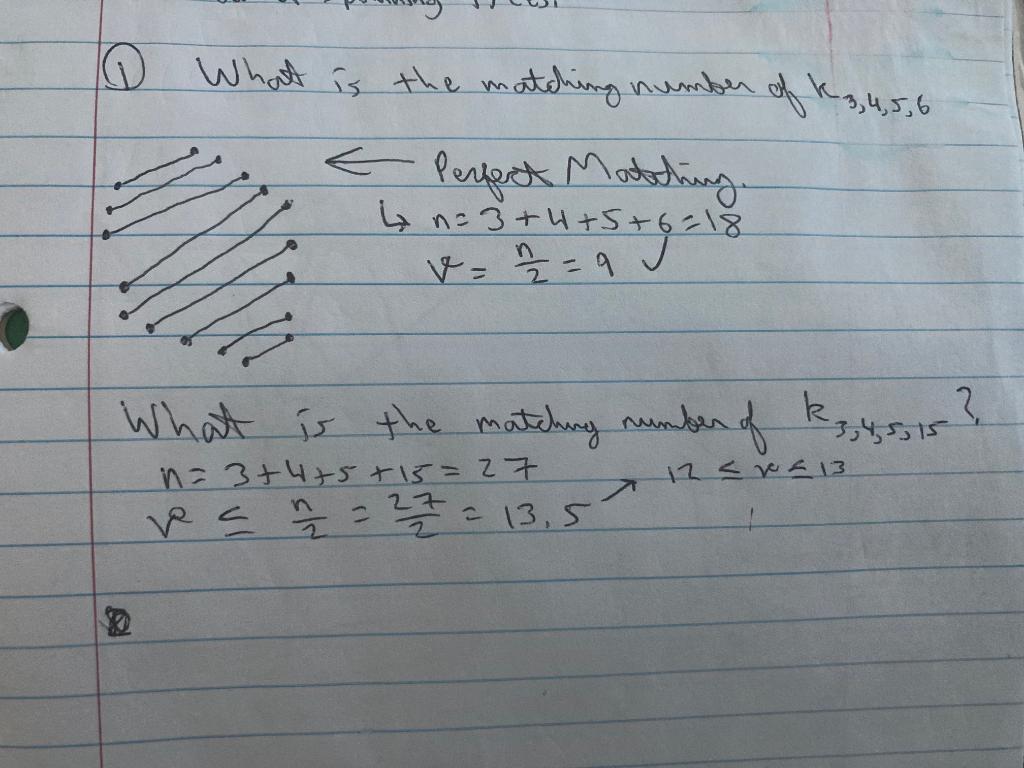 ① What is the matching number of K3,4,5,6
← Perfect Matching.
↳ n = 3 + 4 + 5 + 6 = 18
ν = n/2 = 9 ✓
What is the matching number of K3,4,5,15?
n = 3 + 4 + 5 + 15 = 27
12 ≤ ν ≤ 13
ν ≤ n/2 = 27/2 = 13.5 →